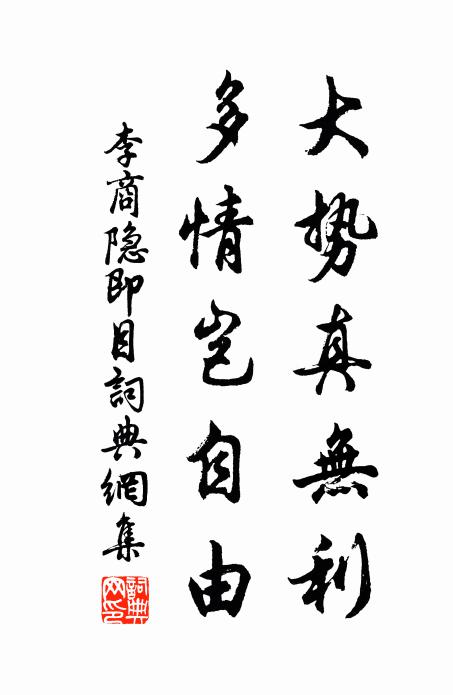 大势真無利
多情岂自由
李商隐即目詞典網集
詞典網印